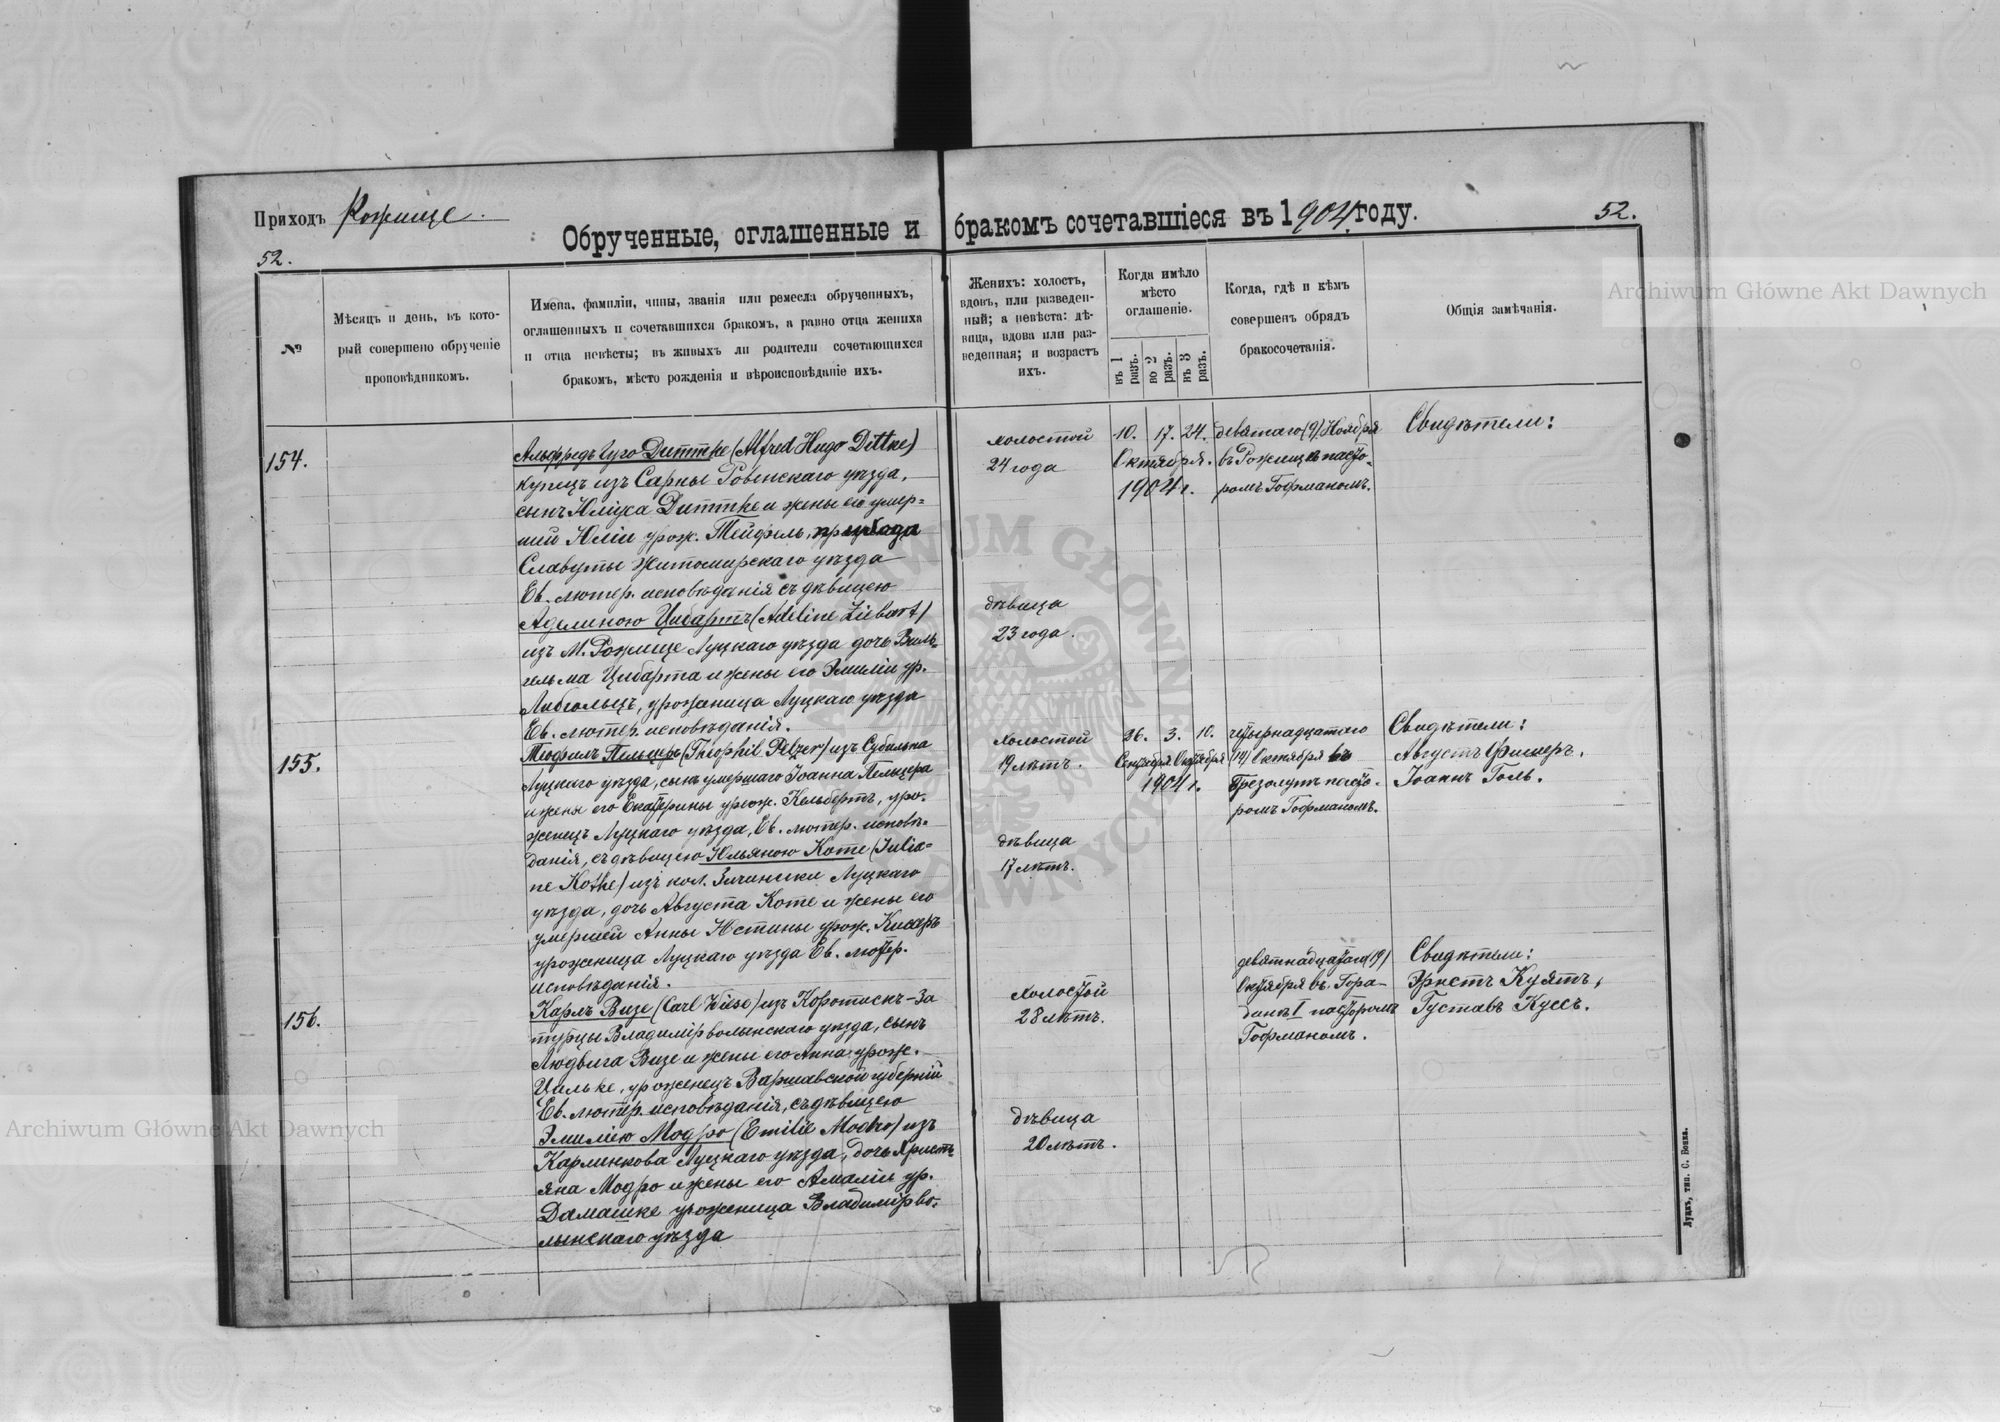 Приходъ Рожище.
Обрученные, оглашенные и бракомъ сочетавшіеся въ 1904 году.
52.
52.
№
Мѣсяцъ и день, въ кото-
рый совершено обрученіе
проповѣдникомъ.
Имена, фамиліи, чины, званія или ремесла обрученныхъ,
оглашенныхъ и сочетавшихся бракомъ, а равно отца жениха
и отца невѣсты; въ живыхъ ли родители сочетающихся
бракомъ, мѣсто рожденія и вѣроисповѣданіе ихъ.
Женихъ: холостъ,
вдовъ, или разведен-
ный; а невѣста: дѣ-
вица, вдова или раз-
веденная; и возрастъ
ихъ.
Когда имѣло
мѣсто
оглашеніе.
въ 1 разъ.
во 2 разъ.
въ 3 разъ.
Когда, гдѣ и кѣмъ
совершенъ обрядъ
бракосочетанія.
Общія замѣчанія.
154.
Альфредъ Гуго Диттке (Alfred Hugo Dittke)
купецъ изъ Сарны Ровенскаго уѣзда,
сынъ Юліуса Диттке и жены его умер-
шей Юліи урож. Тейфель, прихода
Славуты Житомирскаго уѣзда
Ев. лютер. исповѣданія съ дѣвицею
Аделиною Цибартъ (Adeline Ziebart)
изъ М. Рожище Луцкаго уѣзда дочь Виль-
гельма Цибарта и жены его Эмиліи ур.
Либгольцъ, уроженица Луцкаго уѣзда
Ев. лютер. исповѣданія.
холостой
24 года
дѣвица
23 года.
10. 17. 24.
Октября.
1904 г.
девятаго (9) Ноября
въ Рожище пасто-
ромъ Гофманомъ.
Свидѣтели:
155.
Теофилъ Пельцеръ (Theophil Pelzer) изъ Субильна
Луцкаго уѣзда, сынъ умершаго Іоанна Пельцера
и жены его Екатерины урож. Кельбертъ, уро-
женецъ Луцкаго уѣзда, Ев. лютер. исповѣ-
данія, съ дѣвицею Юльяною Коте (Julia-
ne Kothe) изъ кол. Луцкаго
уѣзда, дочь Августа Коте и жены его
умершей Анны Юстины урож.
уроженица Луцкаго уѣзда Ев. лютер.
исповѣданія.
холостой
19 лѣтъ.
дѣвица
17 лѣтъ.
26. 3. 10.
Сентября Октября
1904 г.
четырнадцатаго
(14) Октября въ
пасто-
ромъ Гофманомъ.
Свидѣтели:
Августъ Фишеръ.
Іоаннъ Голь.
156.
Карлъ Визе (Carl Wiese) изъ Коротискъ-За
турцы Владимірволынскаго уѣзда, сынъ
Людвига Визе и жены его Анна урож.
Цильке, уроженецъ Варшавской губерніи
Ев. лютер. исповѣданія, съ дѣвицею
Эмиліею Модро (Emilie Modro) изъ
Карлинкова Луцкаго уѣзда, дочь Христі-
яна Модро и жены его Амаліи ур.
Дамашке уроженица Владимірво-
лынскаго уѣзда
холостой
28 лѣтъ.
дѣвица
20 лѣтъ.
девятнадцатаго (19)
Октября въ Гора-
I пасторомъ
Гофманомъ.
Свидѣтели:
Эрнстъ Куятъ,
Густавъ Куссъ.
Луцкъ, тип. С. Бенка.
Archiwum Główne Akt Dawnych
Archiwum Główne Akt Dawnych